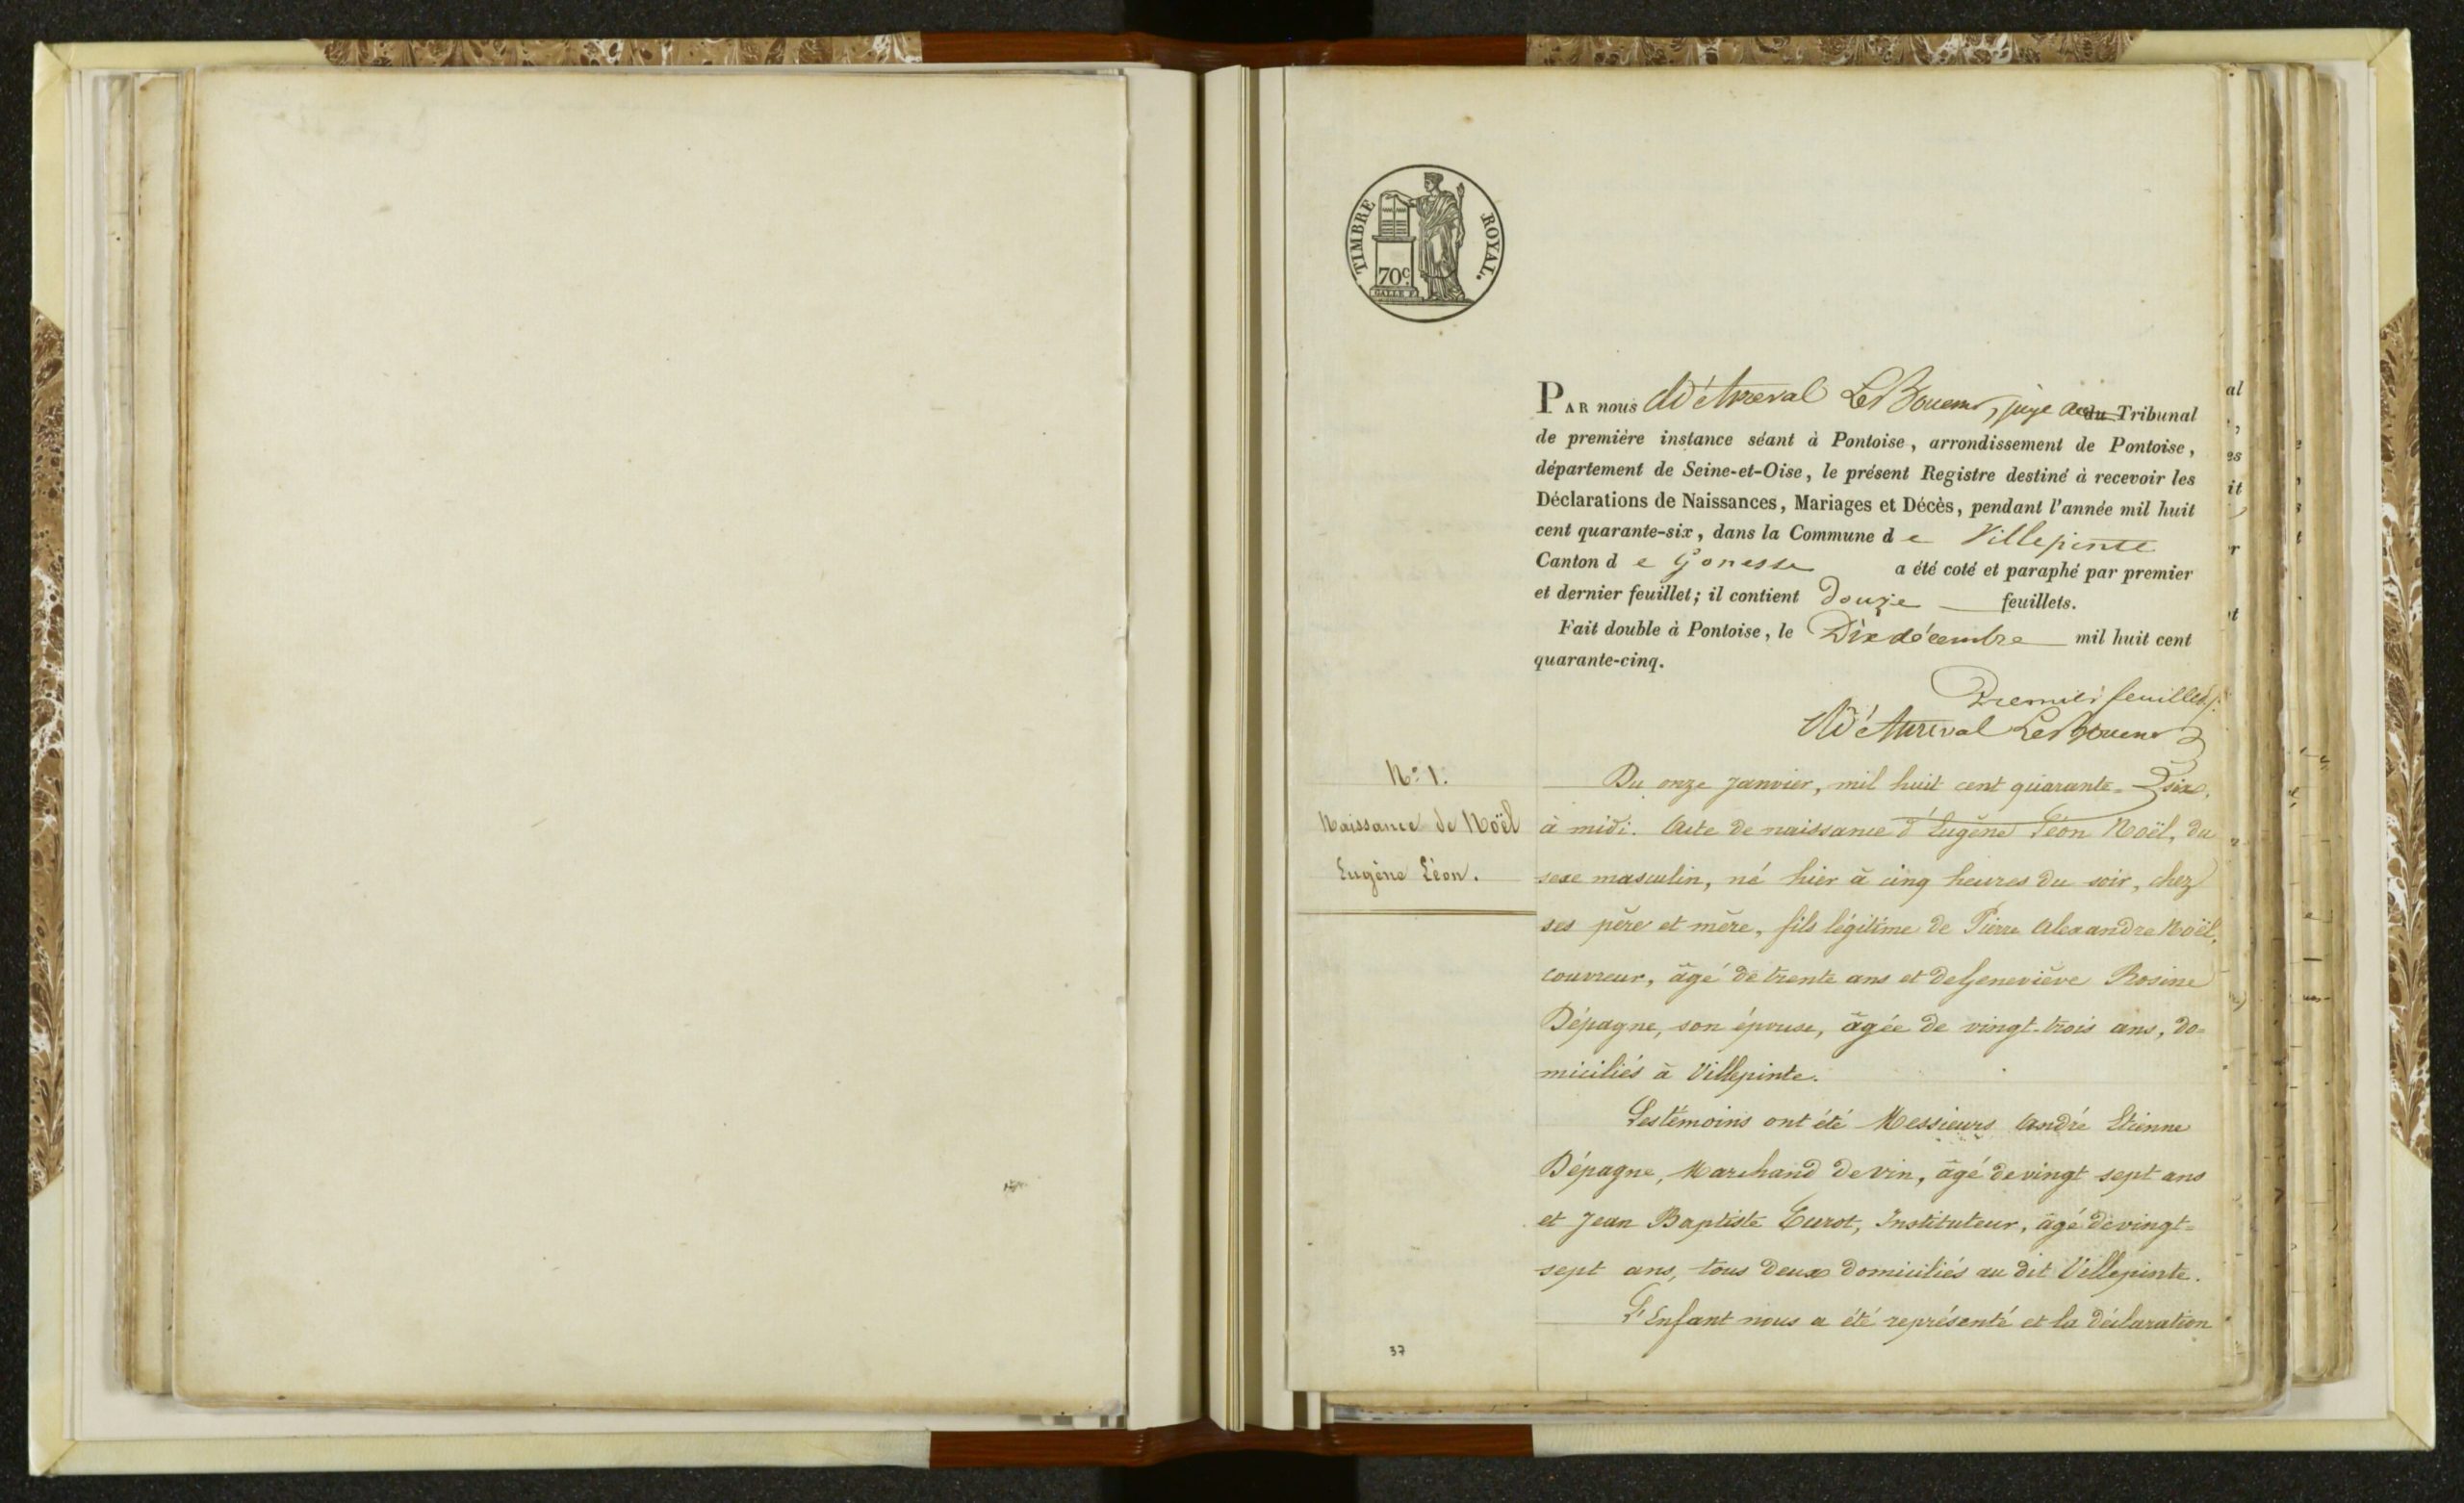 TIMBRE ROYAL.
70c
PAR nous juge du Tribunal
de première instance séant à Pontoise, arrondissement de Pontoise,
département de Seine-et-Oise, le présent Registre destiné à recevoir les
Déclarations de Naissances, Mariages et Décès, pendant l'année mil huit
cent quarante-six, dans la Commune de Villepinte
Canton de Gonesse a été coté et paraphé par premier
et dernier feuillet; il contient Douze feuillets.
Fait double à Pontoise, le Dix décembre mil huit cent
quarante-cinq.
Premier feuillet
No. 1.
Naissance de Noël
Eugène Léon.
Du onze janvier, mil huit cent quarante-six,
à midi. Acte de naissance d'Eugène Léon Noël, du
sexe masculin, né hier à cinq heures du soir, chez
ses père et mère, fils légitime de Pierre Alexandre Noël,
couvreur, âgé de trente ans et de Geneviève Rosine
Dépagne, son épouse, âgée de vingt-trois ans, do=
miciliés à Villepinte.
Les témoins ont été Messieurs André Etienne
Dépagne, Marchand de vin, âgé de vingt sept ans
et Jean Baptiste Curot, Instituteur, âgé de vingt=
sept ans, tous deux domiciliés au dit Villepinte.
L'Enfant nous a été représenté et la déclaration
37